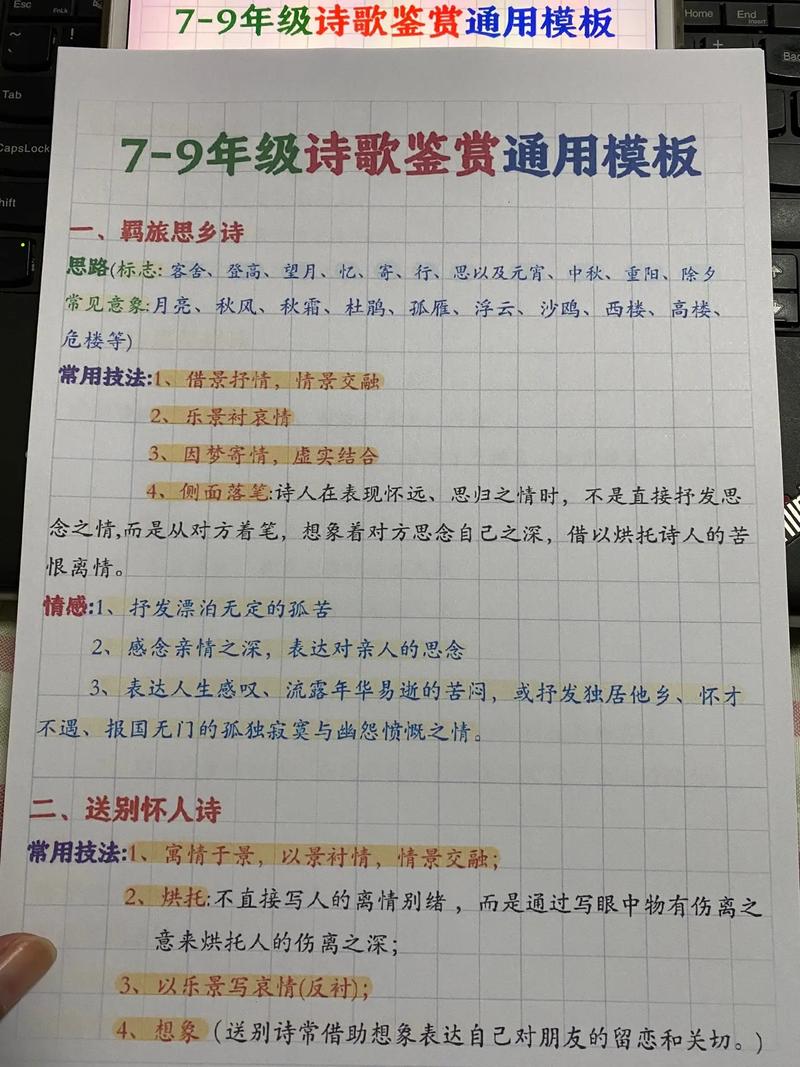 7-9年级诗歌鉴赏通用模板
Esc
Home
End
Insert
Tab
CapsLock
hift
Bac
7-9年级诗歌鉴赏通用模板
一、羁旅思乡诗
思路(标志: 客舍、登高、望月、忆、寄、行、思以及元宵、中秋、重阳、除夕
常见意象:月亮、秋风、秋霜、杜鹃、孤雁、浮云、沙鸥、西楼、高楼、
危楼等)
常用技法:1、借景抒情，情景交融
2、乐景衬哀情
3、因梦寄情，虚实结合
4、侧面落笔:诗人在表现怀远、思归之情时，不是直接抒发思
念之情,而是从对方着笔，想象着对方思念自己之深，借以烘托诗人的苦
恨离情。
情感:1、抒发漂泊无定的孤苦
2、感念亲情之深，表达对亲人的思念
3、表达人生感叹、流露年华易逝的苦闷，或抒发独居他乡、怀才
不遇、报国无门的孤独寂寞与幽怨愤慨之情。
二、送别怀人诗
常用技法:1、寓情于景，以景衬情，情景交融；
2、烘托:不直接写人的离情别绪，而是通过写眼中物有伤离之
意来烘托人的伤离之深；
3、以乐景写哀情(反衬)；
4、想象（送别诗常借助想象表达自己对朋友的留恋和关切。）